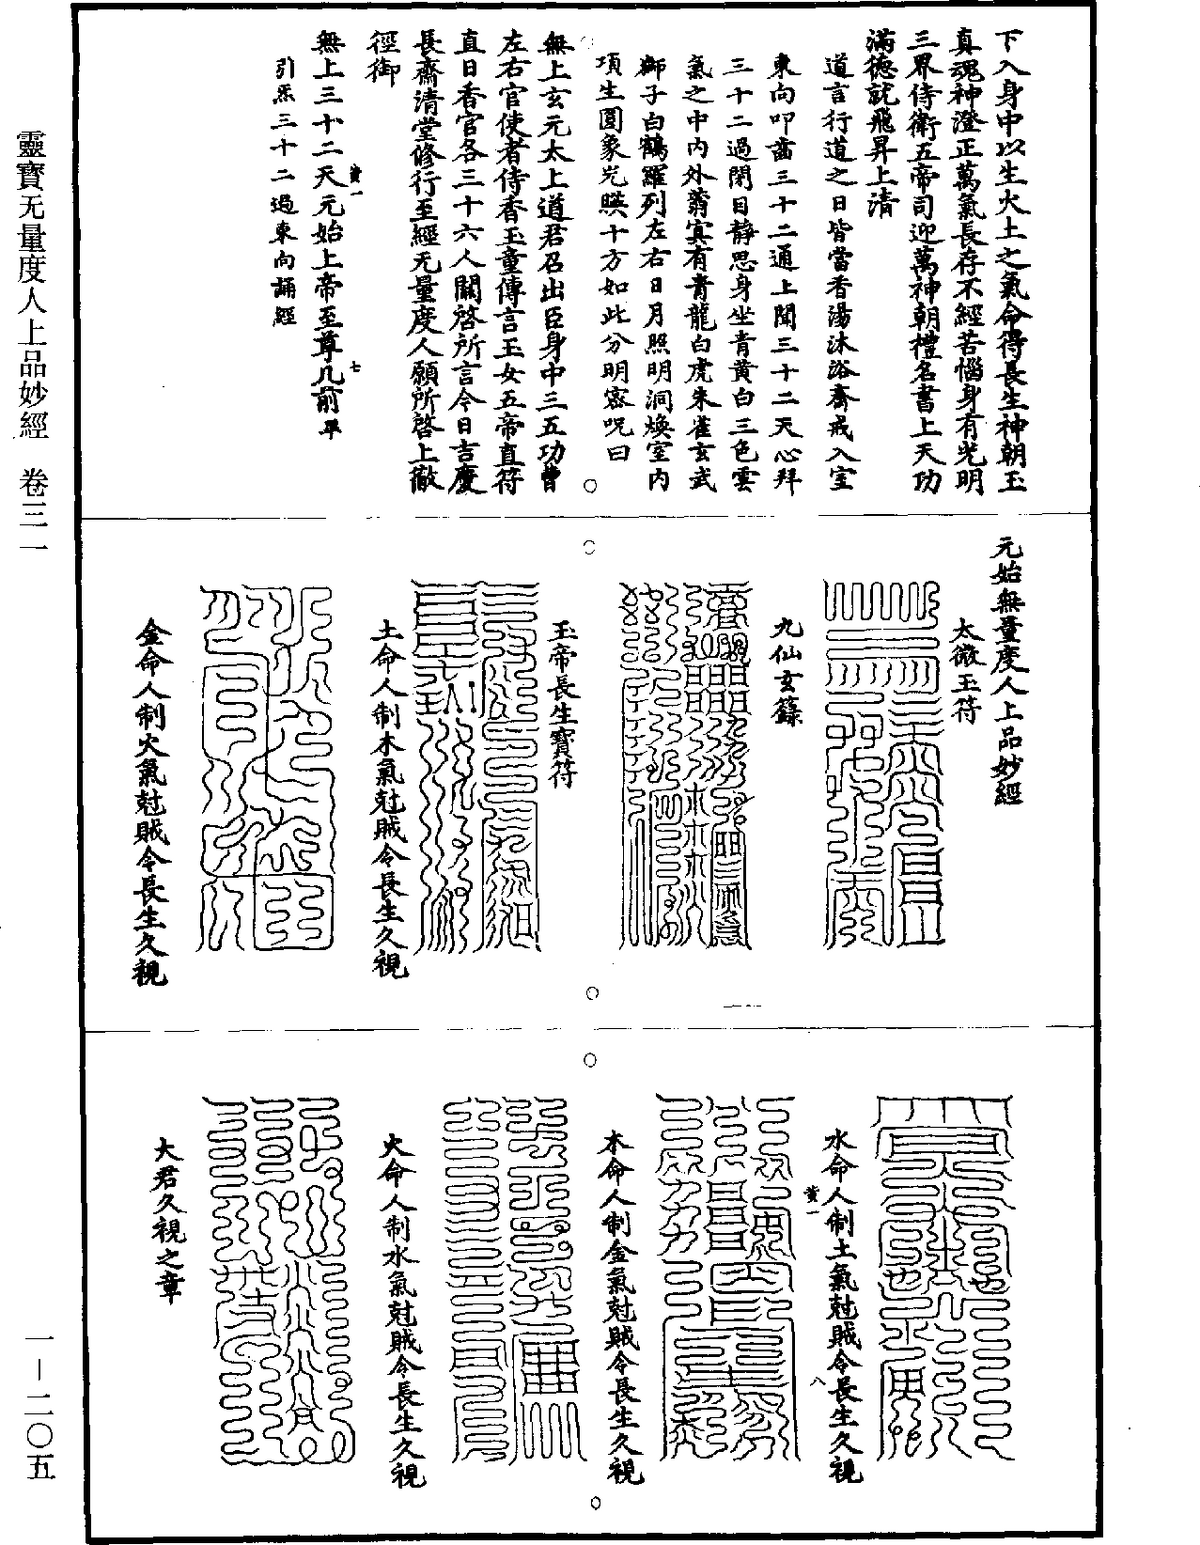 下入身中以生火土之氣命得長生神朝玉
真魂神澄正萬氣長存不經苦惱身有光明
三界侍衛五帝司迎萬神朝禮名書上天功
滿德就飛昇上清
道言行道之日皆當香湯沐浴齋戒入室
東向叩齒三十二通上聞三十二天心拜
三十二過閉目靜思身坐青黃白三色雲
氣之中內外蓊冥有青龍白虎朱雀玄武
獅子白鶴羅列左右日月照明洞煥室內
項生圓象光暎十方如此分明密呪曰
無上玄元太上道君召出臣身中三五功曹
左右官使者侍香玉童傳言玉女五帝直符
直日香官各三十六人關啓所言今日吉慶
長齋清堂修行至經无量度人願所啓上徹
徑御
黃一
無上三十二天元始上帝至尊几前畢
七
引炁三十二過東向誦經
元始無量度人上品妙經
太微玉符
九仙玄籙
玉帝長生寶符
土命人制木氣尅賊令長生久視
金命人制火氣尅賊令長生久視
水命人制土氣尅賊令長生久視
黃一
八
木命人制金氣尅賊令長生久視
火命人制水氣尅賊令長生久視
大君久視之章
靈寶无量度人上品妙經 卷三一
一—二〇五